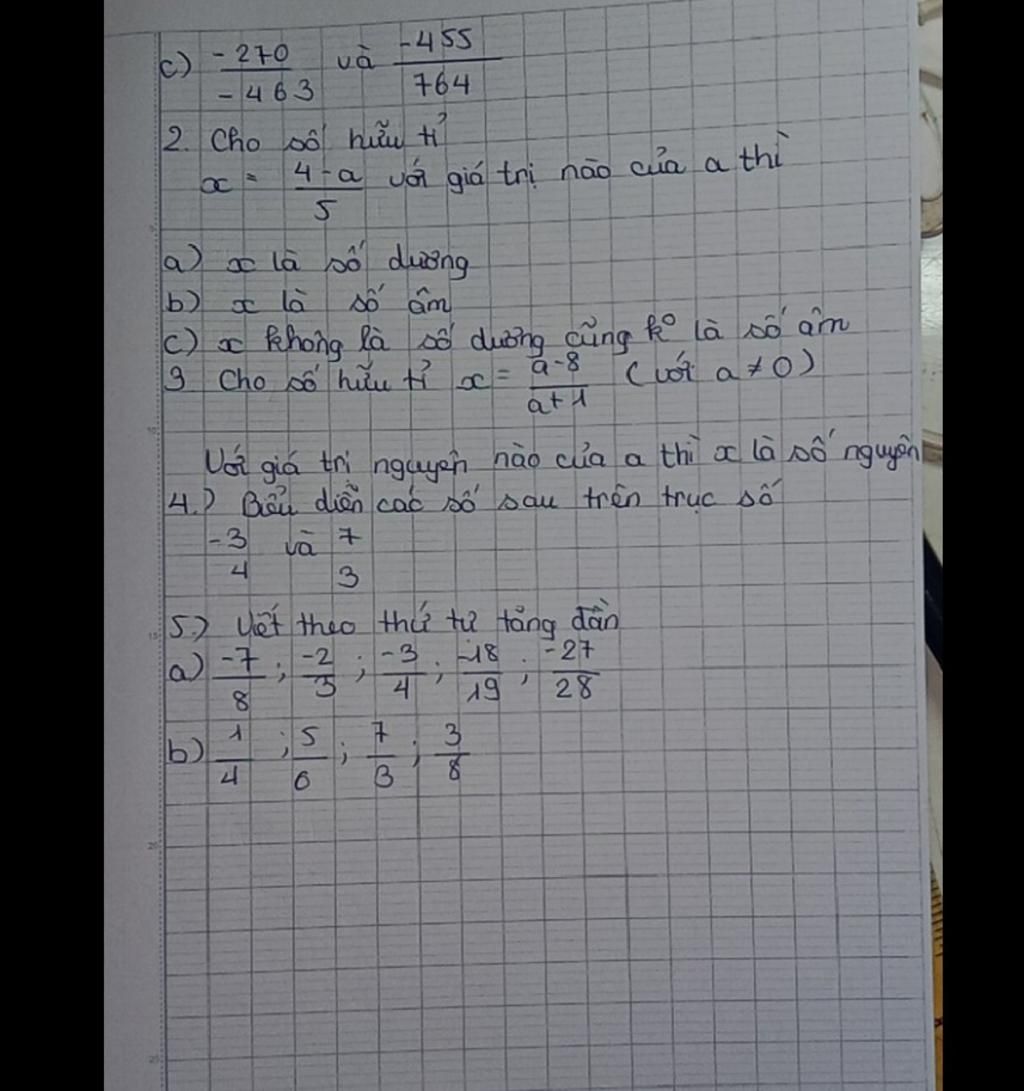 c) -270/-463 và -455/764
2. Cho số hữu tỉ
x = 4-a/5 với giá trị nào của a thì
a) x là số dương
b) x là số âm
c) x không là số dương cũng ko là số âm
3 Cho số hữu tỉ x = a-8/a+1 (với a ≠ 0)
Với giá trị nguyên nào của a thì x là số nguyên
4.) Biểu diễn các số sau trên trục số
-3/4 và 7/3
5.) Viết theo thứ tự tăng dần
a) -7/8 ; -2/3 ; -3/4 ; -18/19 ; -27/28
b) 1/4 ; 5/6 ; 7/3 ; 3/8